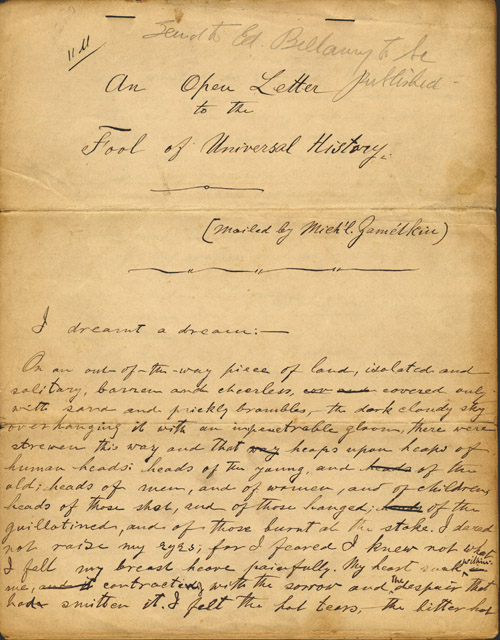 Send to Ed. Bellamy to be
published -
11 M
An Open Letter
to the
Fool of Universal History.
(mailed by Mich'l. Zamétkin)
I dreamt a dream:—
On an out-of-the-way piece of land, isolated and
solitary, barren and cheerless, cov and covered only
with sand and prickly brambles, - the dark cloudy sky
overhanging it with an impenetrable gloom, there were
strewen this way and that way heaps upon heaps of
human heads: heads of the young, and heads of the
old; heads of men, and of women, and of children;
heads of those shot, and of those hanged; heads of the
guillotined, and of those burnt at the stake. I dared
not raise my eyes, for I feared I knew not what.
I felt my breast heave painfully. My heart sunk within
me, and it contracted with the sorrow and the despair that
had smitten it. I felt the hot tears, - the bitter hot